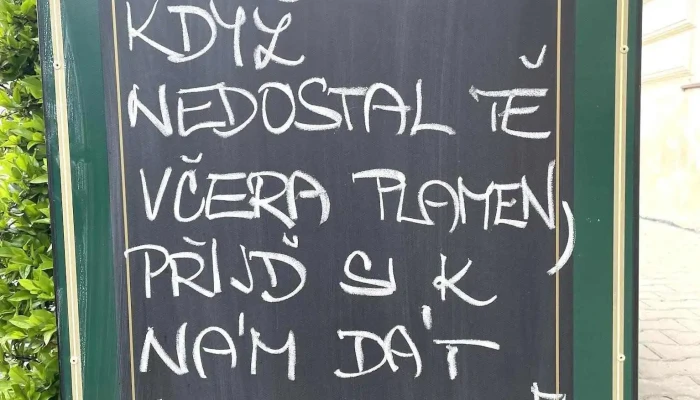 KDYŽ
NEDOSTAL TĚ
VČERA PLAMEN,
PŘIJĎ SI K
NÁM DÁT